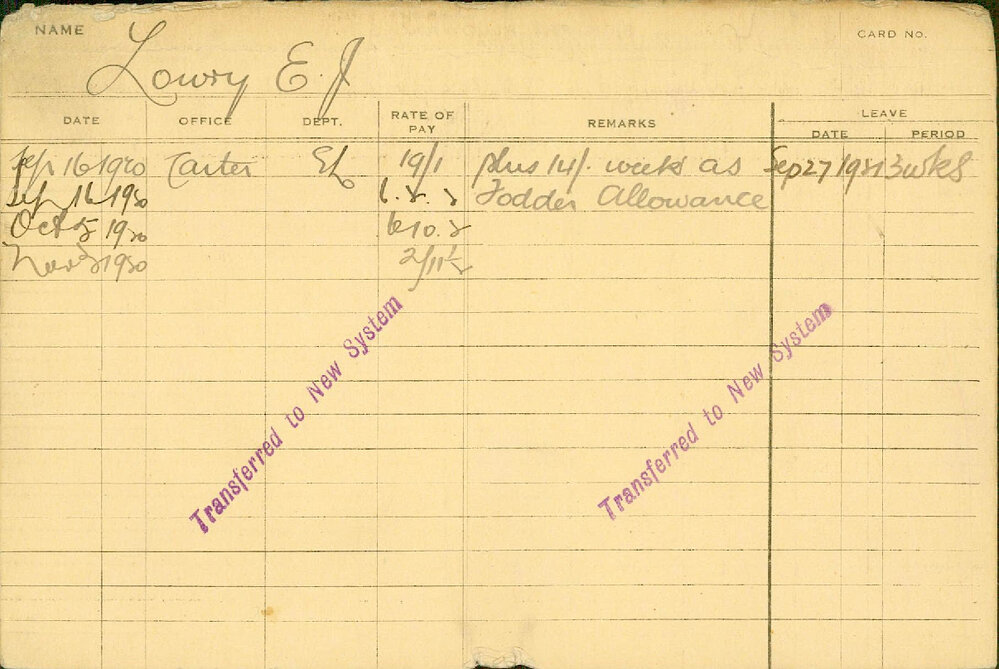 NAME Lowry E. J CARD NO.
DATE OFFICE DEPT. RATE OF PAY REMARKS LEAVE DATE PERIOD
Sep 16 1920 Carter EL 19/1 plus 14/. week as Sep 27 1921 3 wks
Sep 16 1920 6. 8. Fodder Allowance
Oct 5 1920 6 10.
Nov 1920 2/11½
Transferred to New System
Transferred to New System